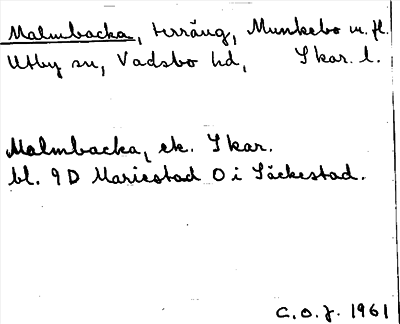 Malmbacka, terräng, Munkebo m. fl.
Utby sn, Vadsbo hd, Skar. l.
Malmbacka, ek. Skar.
bl. 9D Mariestad O i Säckestad.
C.O.J. 1961